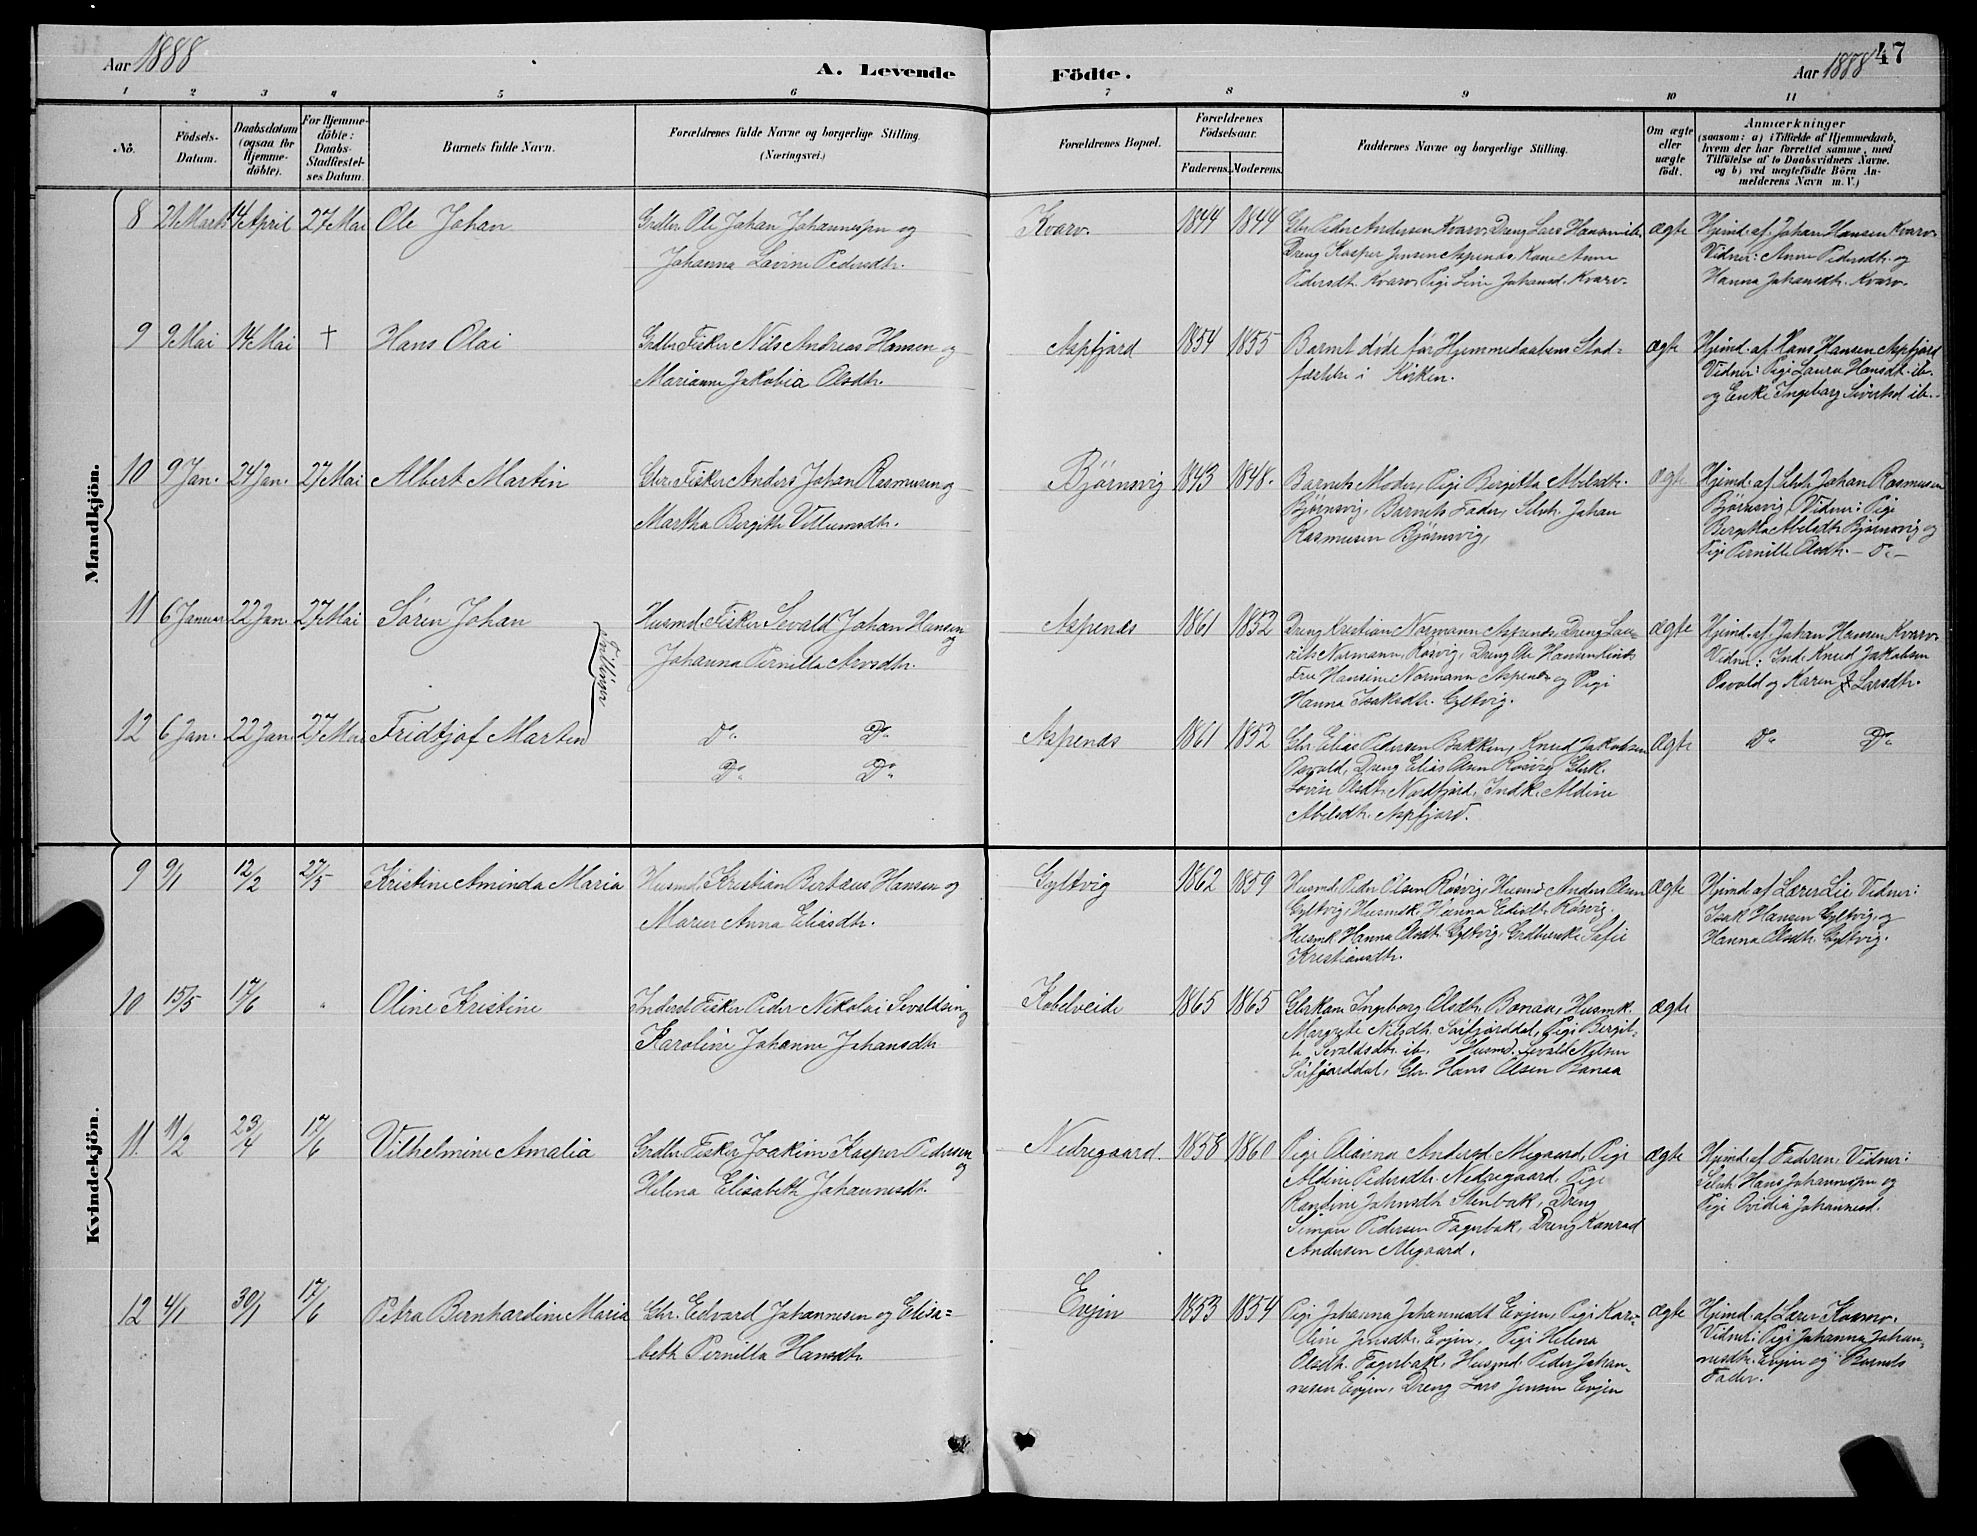 Aar 1888
A. Levende Födte.
Aar 1888
47
1 2 3 4 5 6 7 8 9 10 11
No.
Födsels-Datum.
Daabsdatum (ogsaa for Hjemme-döbte).
For Hjemme-döbte: Daabs-Stadfæstel-ses Datum.
Barnets fulde Navn.
Forældrenes fulde Navne og borgerlige Stilling.
(Næringsvei.)
Forældrenes Bopæl.
Forældrenes Födselsaar.
Faderens. Moderens.
Faddernes Navne og borgerlige Stilling.
Om ægte eller uægte födt.
Anmærkninger
(saasom: a) i Tilfælde af Hjemmedaab, hvem der har forrettet samme, med Tilföielse af to Daabsvidners Navne. og b) ved uægtefödte Börn An-melderens Navn m. V.)
Mandkjön.
8 21 Marts 14 April 27 Mai Ole Johan
Grdbr. Ole Johan Johannessen og
Johanna Lavine Pedersdtr.
Kvarv 1844 1844
Gbr. Peder Andersen Kvarv, Dreng Lars Hansen ib.,
Dreng Kasper Jensen Aspenæs, Kone Anne
Pedersdtr. Kvarv, Pige Line Johansd. Kvarv.
ægte
Hjemd. af Johan Hansen Kvarv.
Vidner: Anne Pedersdtr. og
Hanna Johansdtr. Kvarv.
9 9 Mai 14 Mai † Hans Olai
Grdbr. Fisker Nils Andreas Hansen og
Marianne Jakobia Olsdtr.
Aspfjord 1854 1855
Barnet døde før Hjemmedaabens Stad-
fæstelse i Kirken.
ægte
Hjemd. af Hans Hansen Aspfjord
Vidner: Pige Laura Hansdt. ib.
og Enke Ingeborg Sivertsd. ib.
10 9 Jan. 24 Jan. 27 Mai Albert Martin
Gbr. Fisker Anders Johan Rasmusen og
Martha Bergith Villumsdtr.
Bjørnsvig 1843 1848.
Barnets Moder, Pige Bergitta Abelsdtr.
Bjørnsvig, Barnets Fader, Selvh. Johan
Rasmusen Bjørnsvig,
ægte
Hjemd. af Selvh. Johan Rasmusen
Bjørnsvig, Vidner: Pige
Bergitta Abelsdtr. Bjørnsvig og
Pige Pernille Olsdtr. — do —
11 6 Januar 22 Jan. 27 Mai Søren Johan
Tvillinger
Husmd. Fisker Sevald Johan Hansen
og
Johanna Pernilla Arosdtr.
Aspenæs 1861 1852
Dreng Kristian Normann Aspenæs, Dreng Lau-
rits Normann, Røsvig, Dreng Ole Hansen
Hansine Normann Aspenæs og Pige
Hanna Isaksdtr. Gyltvig.
ægte
Hjemd. af Johan Hansen Kvarv.
Vidner: Ind. Knud Jakobsen
Osvold og Karen Larsdtr.
12 6 Jan. 22 Jan. 27 Mai Fridtjof Marten
do. Do.
Do. Do.
Aspenæs 1861 1852
Gbr. Elias Pedersen Bakken, Knud Jakobsen
Osvold, Dreng Elias Olsen Røsvig, Gbrk.
Lovise Olsdtr. Nordfjord, Indk. Aldine
Abelsdtr. Aspfjord.
ægte
do Do
Kvindekjön.
9 9/1 12/2 27/5 Kristine Aminda Maria
Husmd. Kristian Bertæus Hansen og
Maren Anna Eliasdtr.
Gyltvig 1862 1859
Husmd. Peder Olsen Røsvig, Husmd. Anders Olsen
Gyltvig, Husmk. Hanna Røsvig.
Husmk. Hanna Olsdtr. Gyltvig, Grdbrenke Sofie
Kristiansdtr.
ægte
Hjemd. af Lærer Lie Vidner:
Isak Hansen Gyltvig, og
Hanna Olsdtr. Gyltvig.
10 15/5 17/6 " Oline Kristine
Inderst Fisker Peder Nikolai Sevaldsen
og
Karoline Johanne Johansdtr.
Kobelveide 1865 1865
Gbrkone Ingeborg Olsdtr. Bonaa, Husmk.
Margrete Nilsdtr. Sørfjorddal, Pige Bergit-
te Sevaldsdtr. ib. Husmd. Sevald Nilsen
Sørfjorddal, Gbr. Hans Olsen Bonaa
ægte
11. 11/2 23/4 17/6 Vilhelmine Amalia
Grdbr. Fisker Joakim Kasper Pedersen
og
Helena Elisabeth Johannesdtr.
Nedregaard. 1858 1860
Pige Olianna Andersd. Megaard, Pige
Aldine Pedersdtr. Nedregaard, Pige
Randine Johnsdtr. Stenbak, Dreng
Simon Pedersen Fagerbak, Dreng Konrad
Andersen Megaard.
ægte
Hjemd. af Faderen, Vidner:
Selvh. Hans Johannessen og
Pige Ovidia Johannesd.
12 4/1 30/1 17/6 Petra Bernhardine Maria
Gbr. Edvard Johannesen og Elisa-
beth Pernilla Hansdtr.
Evjen 1853 1854
Pige Johanna Johannesdt. Evjen, Pige Kar-
oline Jensdtr. Evjen, Pige Helena
Olsdtr. Fagerbak, Husmd. Peder Johan-
nesen Evjen, Dreng Lars Jensen Evjen
ægte
Hjemd. af Lærer Kvarv.
Vidner: Pige Johanna Johan-
nesdtr. Evjen og Barnets
Fader.